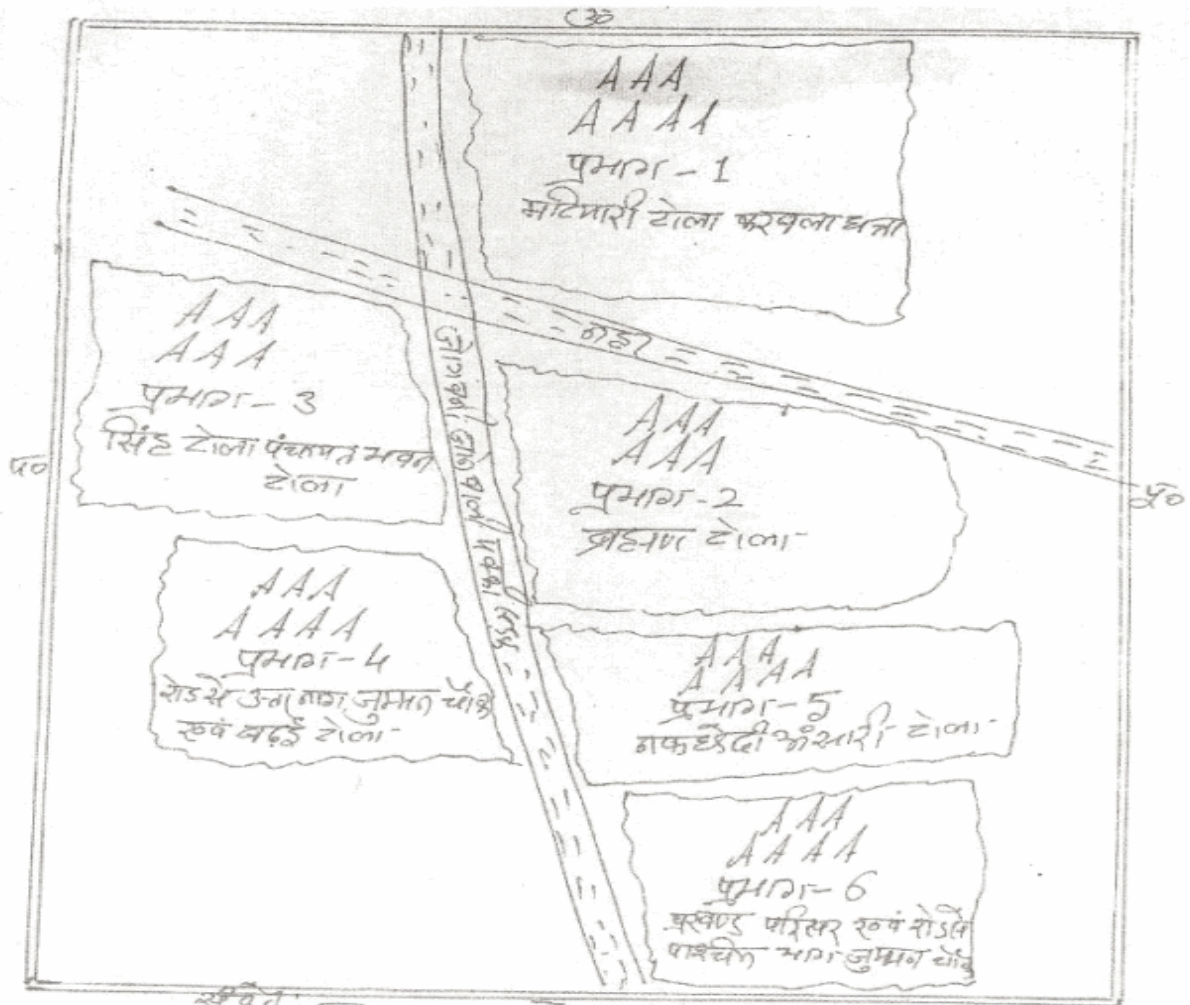 उ०
AAA
AAAA
प्रभाग - 1
मटियारी टोला करबला धत्ता
नहर
AAA
AAA
प्रभाग - 3
सिंह टोला पंचायत भवन
टोला
प०
AAA
AAA
प्रभाग - 2
ब्राह्मण टोला
पू०
जाने वाली पक्की सड़क
AAA
AAAA
प्रभाग - 4
रोड से उत्तर भाग जुम्मन चौक
एवं बढ़ई टोला
AAA
AAAA
प्रभाग - 5
नकछेदी अंसारी टोला
AAA
AAAA
प्रभाग - 6
प्रखण्ड परिसर एवं रोड से
पश्चिम भाग जुम्मन चौक